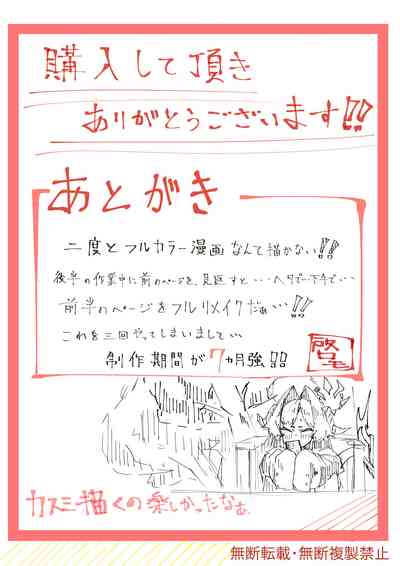 購入して頂き
ありがとうございます!!
あとがき
二度とフルカラー漫画なんて描かない!!
後半の作業中に前のページを見返すと・・・ヘタで下手で・・・
前半のページをフルリメイクだぁ・・・!!
これを三回やってしまいまして・・・
制作期間が7ヵ月強!!
啓
カスミ描くの楽しかったなぁ
無断転載・無断複製禁止